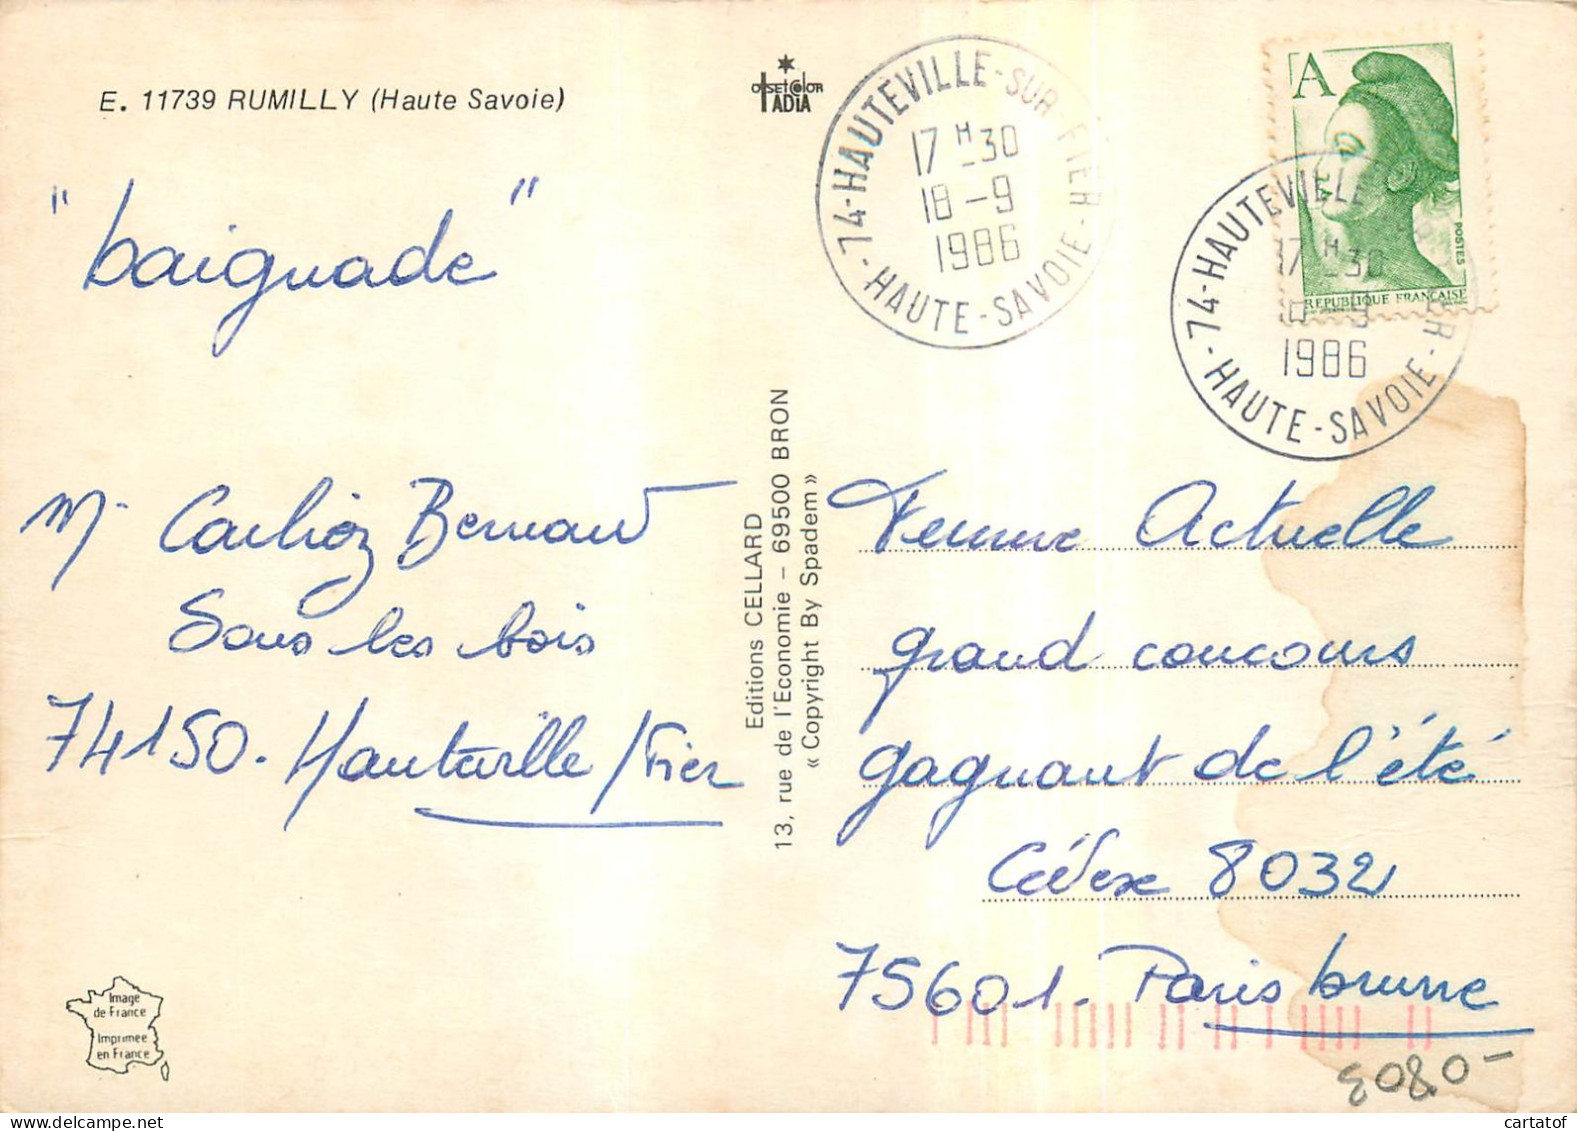 E. 11739 RUMILLY (Haute Savoie)
"baignade"
M. Carlioz Bernard
Sous les bois
74150. Hauteville / Fier
Image
de France
Imprimée
en France
OffsetColor
IADIA
Editions CELLARD
13, rue de l'Economie – 69500 BRON
« Copyright By Spadem »
74-HAUTEVILLE-SUR-FIER
17 H -30
18 -9
1986
-HAUTE-SAVOIE-
A
POSTES
REPUBLIQUE FRANÇAISE
74-HAUTEVILLE-SUR-FIER
17 H -30
18 -9
1986
-HAUTE-SAVOIE-
Femme Actuelle
grand concours
gagnant de l'été
Cédex 8032
75601. Paris brune
3080-
cartatof